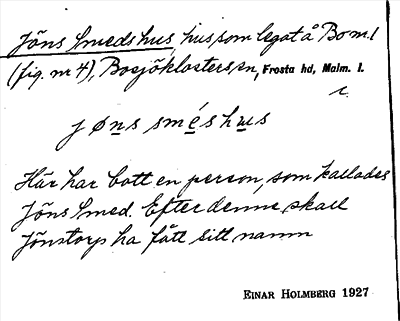 Jöns Smedshus, hus, som legat å Bo m.1
(fig. nr 4), Bosjöklosters sn, Frosta hd, Malm. l.
c.
jøns sméshus
Här har bott en person, som kallades
Jöns Smed. Efter denne skall
Jönstorp ha fått sitt namn
EINAR HOLMBERG 1927